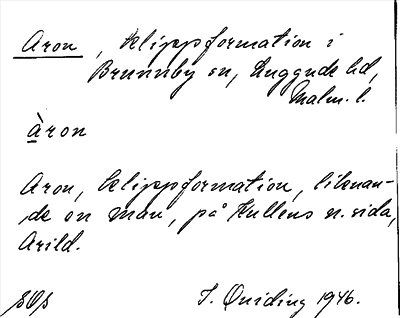 Aron, klippformation i
Brunnby sn, Luggude hd,
Malm. l.
àron
Aron, klippformation, liknan-
de en man, på Kullens n. sida,
Arild.
J. Quiding 1946.